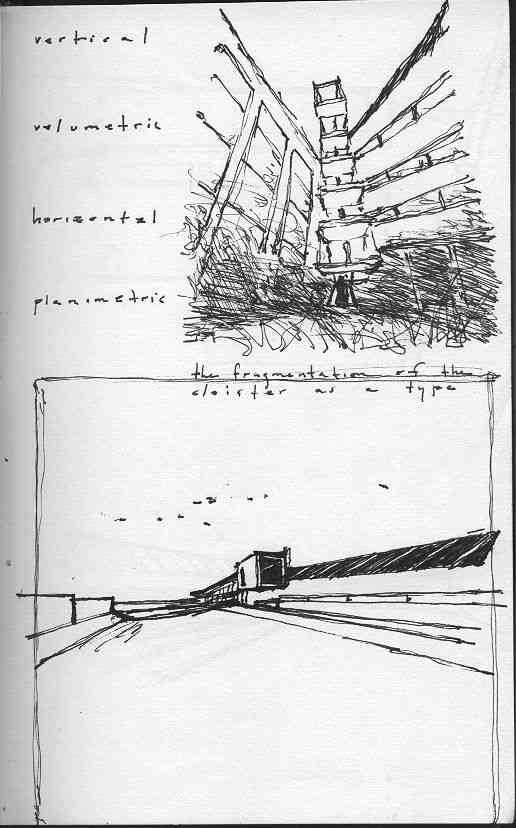 vertical
volumetric
horizontal
planimetric
the fragmentation of the
cloister as a type